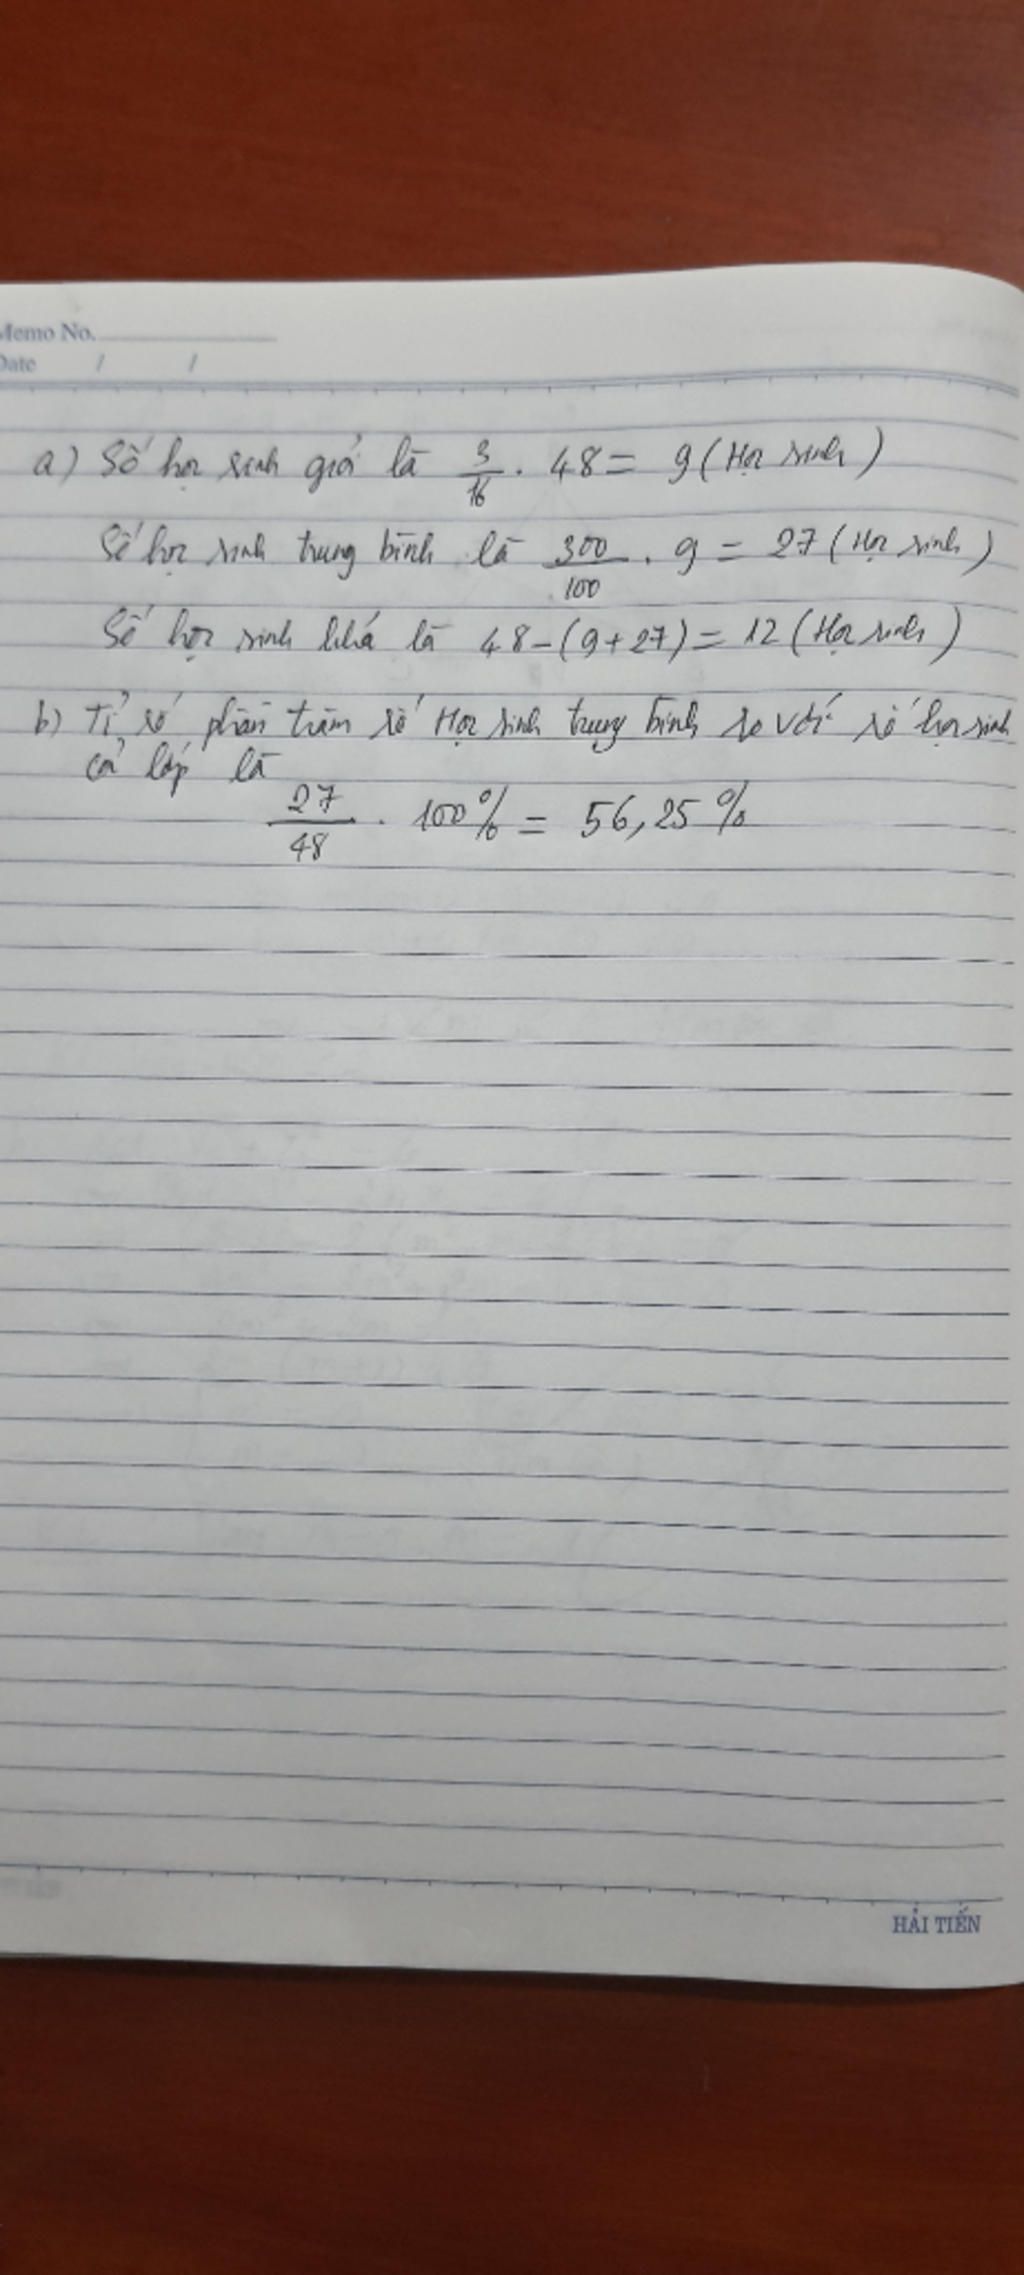 Memo No.
Date / /
a) Số học sinh giỏi là 3/16 . 48 = 9 (Học sinh)
Số học sinh trung bình là 300/100 . 9 = 27 (Học sinh)
Số học sinh khá là 48 - (9 + 27) = 12 (Học sinh)
b) Tỉ số phần trăm số Học sinh trung bình so với số học sinh
cả lớp là
27/48 . 100% = 56,25 %
HẢI TIẾN